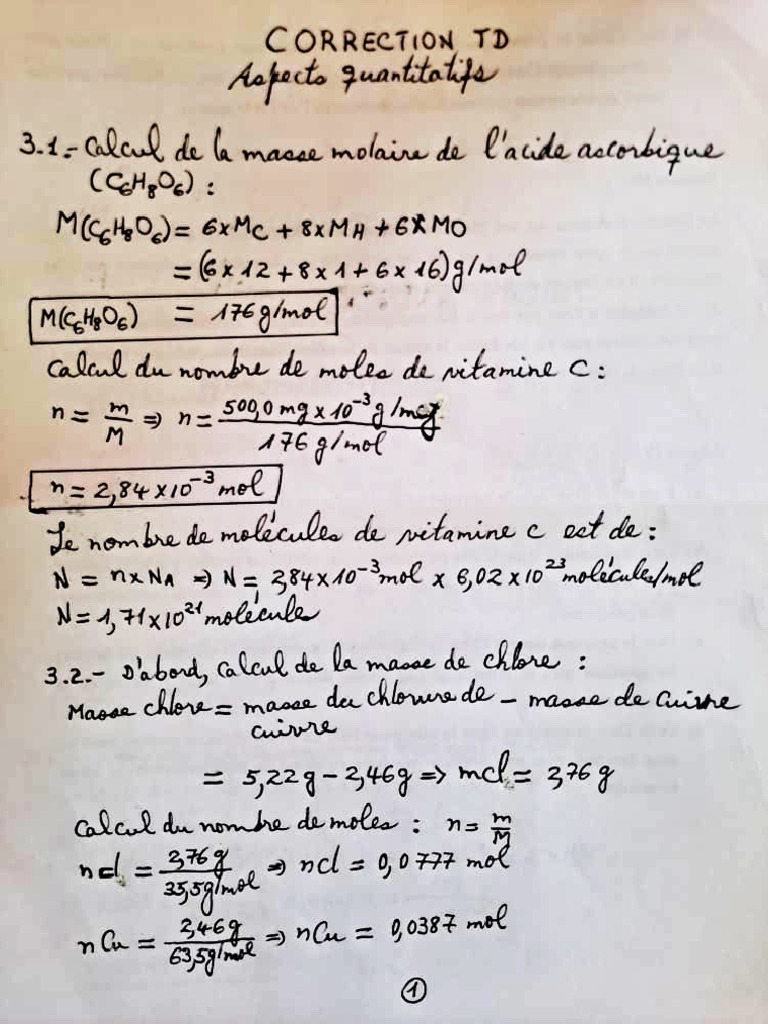 CORRECTION TD
Aspects quantitatifs
3.1.- Calcul de la masse molaire de l'acide ascorbique
(C₆H₈O₆) :
M(C₆H₈O₆) = 6×MC + 8×MH + 6×MO
= (6×12 + 8×1 + 6×16) g/mol
M(C₆H₈O₆) = 176 g/mol
Calcul du nombre de moles de vitamine C :
n = m/M ⇒ n = 500,0 mg × 10⁻³ g/mg / 176 g/mol
n = 2,84×10⁻³ mol
Le nombre de molécules de vitamine C est de :
N = n×NA ⇒ N = 2,84×10⁻³ mol × 6,02×10²³ molécules/mol
N = 1,71×10²¹ molécules
3.2.- D'abord, calcul de la masse de chlore :
Masse chlore = masse du chlorure de - masse de cuivre
cuivre
= 5,22g - 2,46g ⇒ mcl = 2,76 g
Calcul du nombre de moles : n = m/M
ncl = 2,76 g / 35,5g/mol ⇒ ncl = 0,0777 mol
nCu = 2,46g / 63,5g/mol ⇒ nCu = 0,0387 mol
1